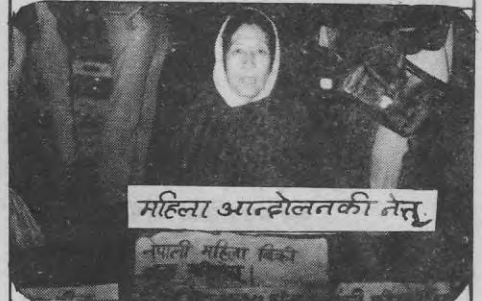 महिला आन्दोलनकी नेतृ
नेपाली महिला बिक्री